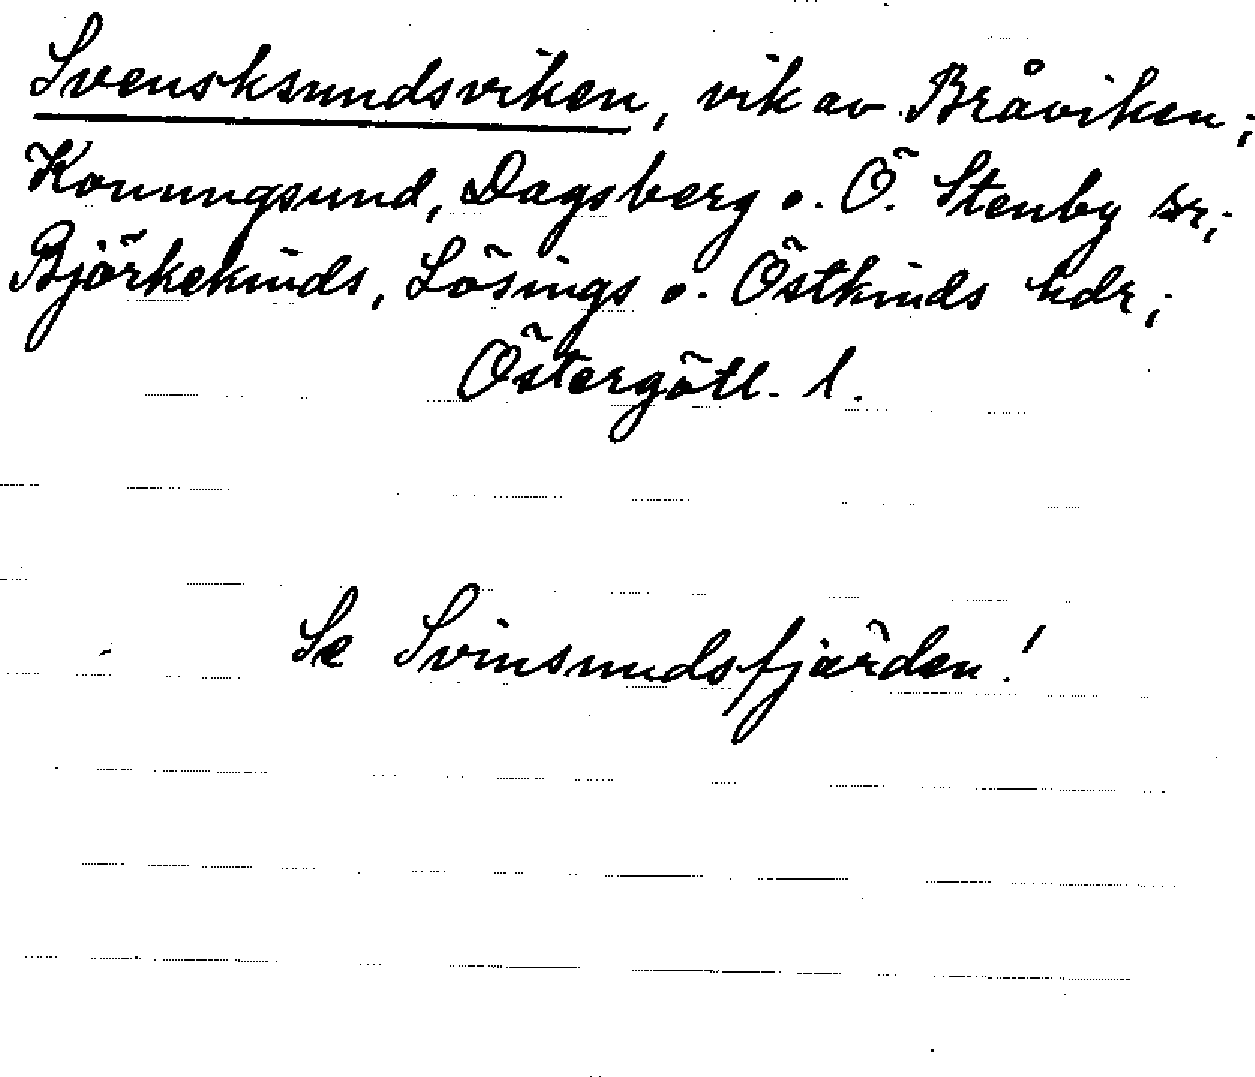 Svensksundsviken, vik av Bråviken;
Konungsund, Dagsberg o. Ö. Stenby snr;
Björkekinds, Lösings o. Östkinds hdr;
Östergötl. l.
Se Svinsundsfjärden!